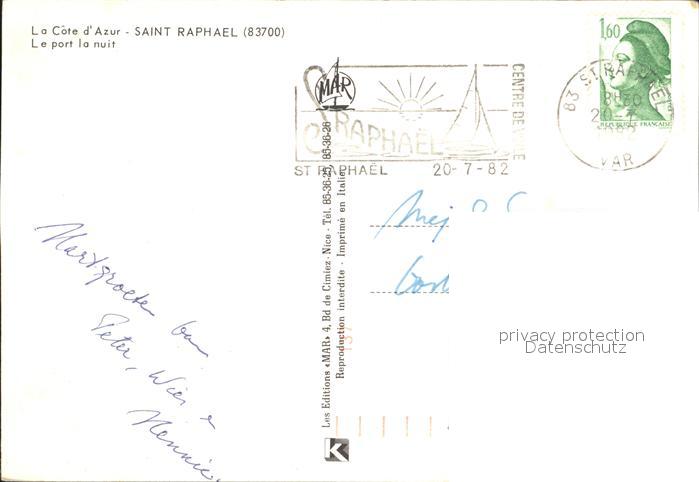 La Côte d'Azur - SAINT RAPHAEL (83700)
Le port la nuit
1,60
MAR
ST RAPHAËL
CENTRE DE VOILE
ST RAPHAËL 20-7-82
83 ST RAPHAEL
20-7
1982
VAR
REPUBLIQUE FRANÇAISE
Les Editions «MAR» 4, Bd de Cimiez - Nice - Tél. 85-36-25 / 85-36-26
Reproduction interdite - Imprimé en Italie
Mej
Hart groeten van
Peter, Wies &
Hennie
137
K
privacy protection
Datenschutz